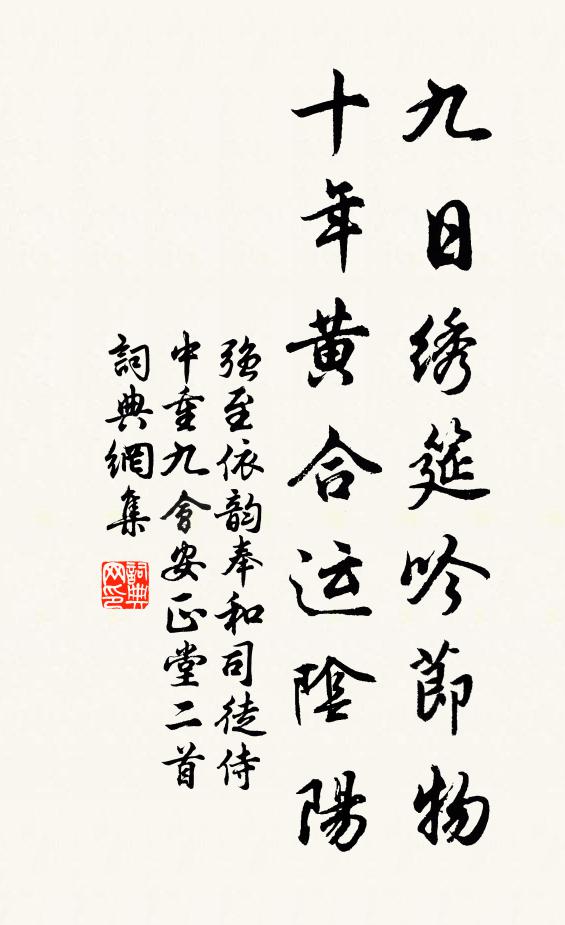 九日绣筵吟節物
十年黄合运陰陽
強至依韵奉和司徒侍
中重九會安正堂二首
詞典網集
詞典网印